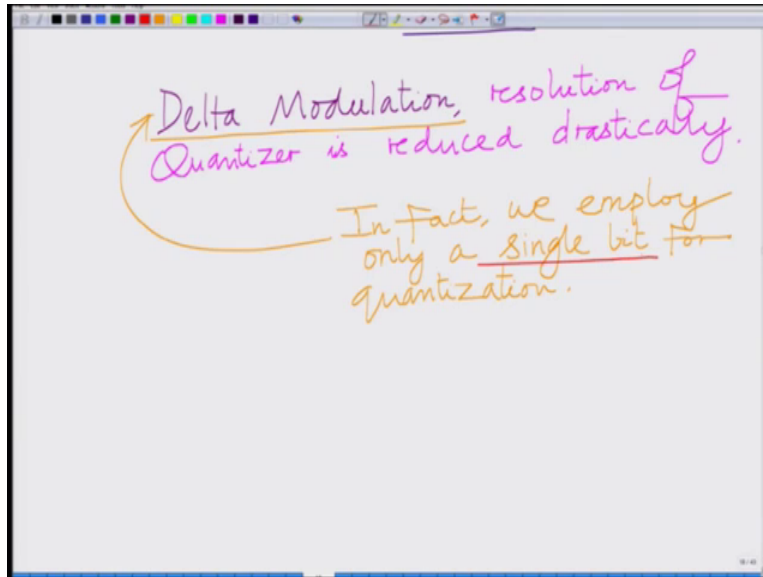 Delta Modulation, resolution of
Quantizer is reduced drastically.
In Fact, we employ
only a single bit for
quantization.